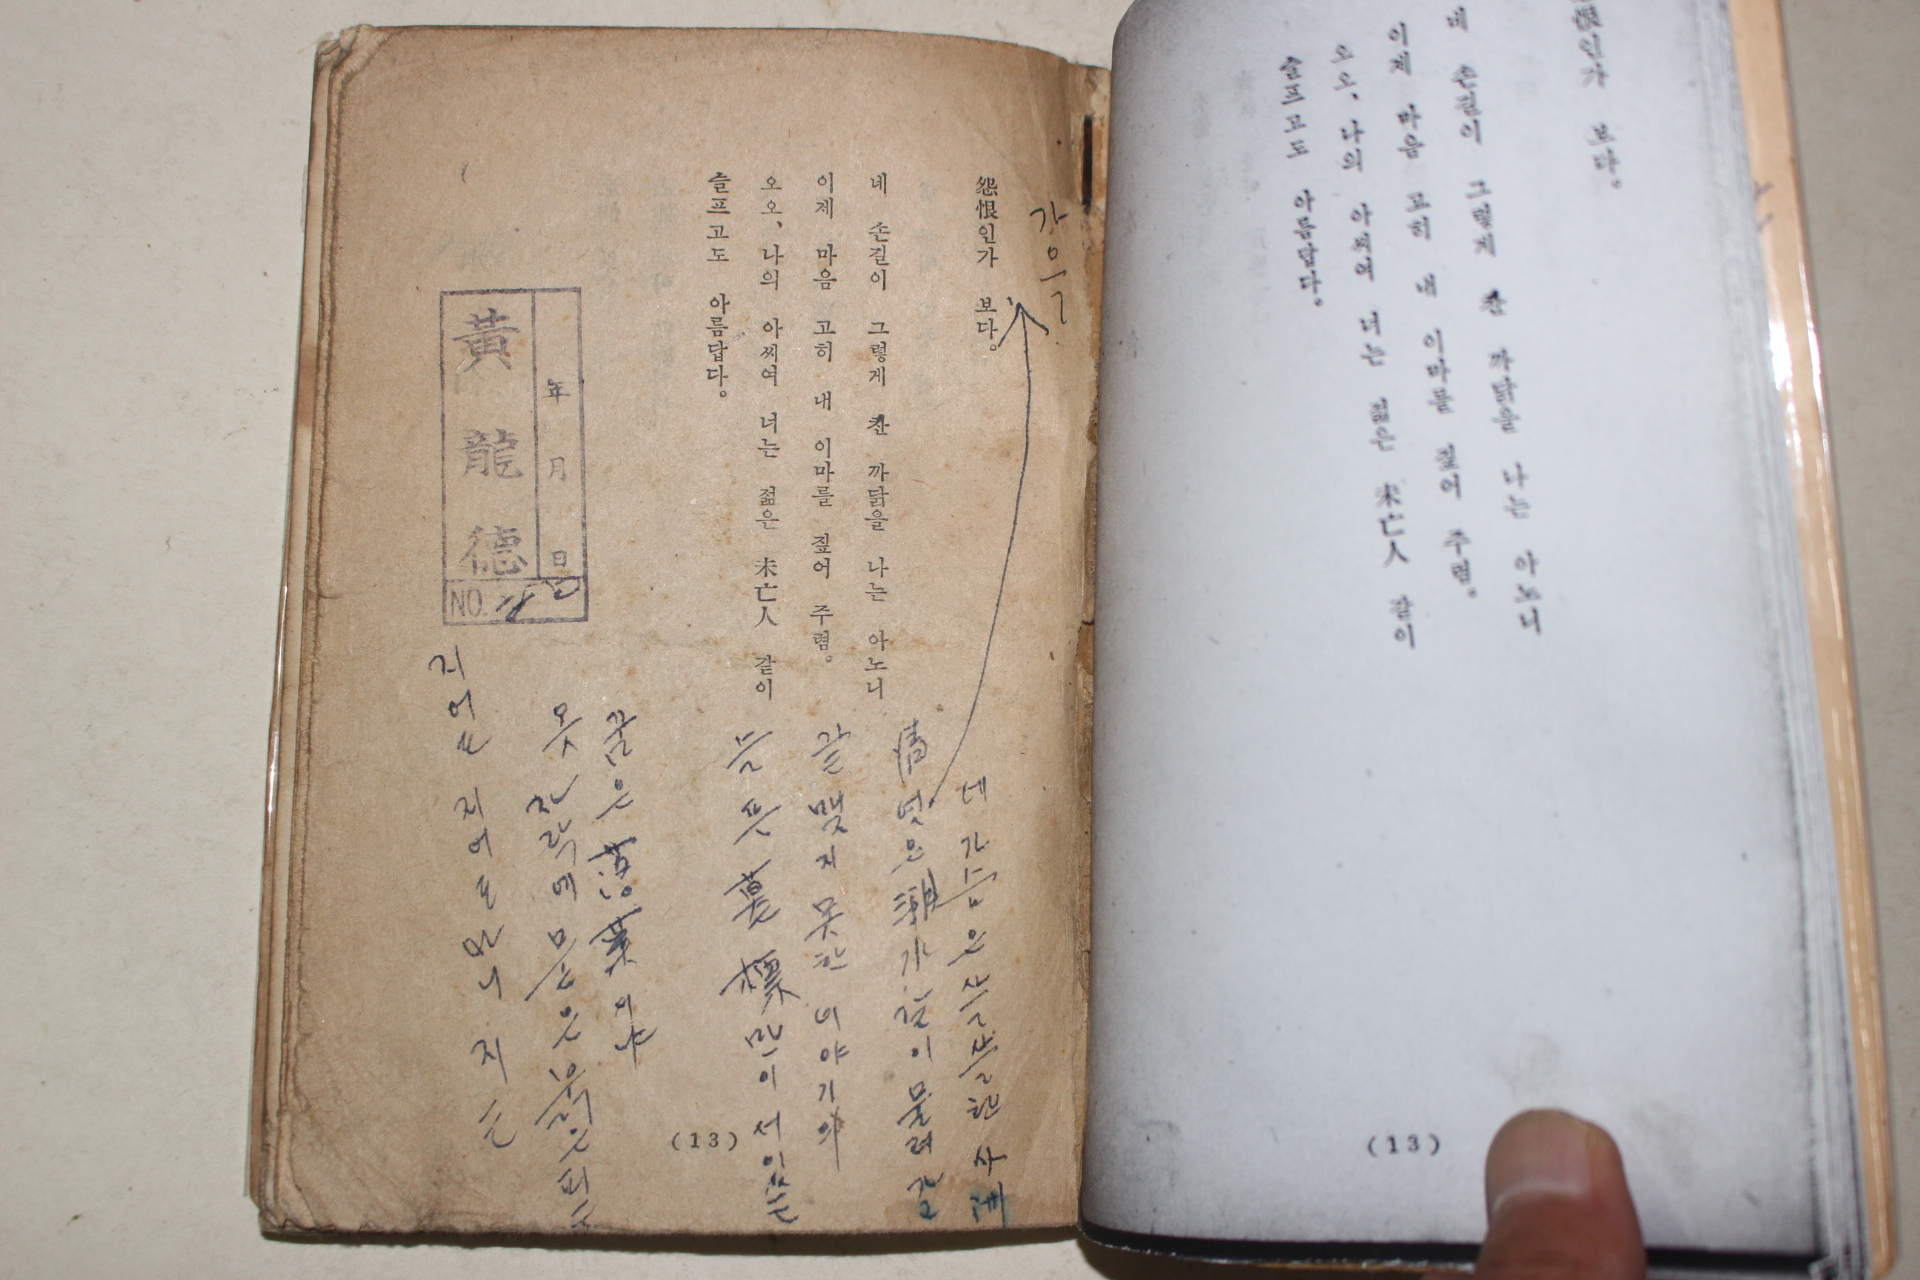 怨恨인가 보다。
네 손길이 그렇게 찬 까닭을 나는 아노니
이제 마음 고히 내 이마를 짚어 주렴。
오오、나의 아씨여 너는 젊은 未亡人 같이
슬프고도 아름답다。
가을
네 가슴은 쓸쓸한 사
情 넋은 가 같이 물려
맺지 못한 이야기
만이 서 있는
꿈은 落葉이냐
옷자락에 묻은 붉은 피
지 지어도
年 月 日
黃龍德
NO.
(13)
恨인가 보다。
네 손길이 그렇게 찬 까닭을 나는 아노니
이제 마음 고히 내 이마를 짚어 주렴。
오오、나의 아씨여 너는 젊은 未亡人 같이
슬프고도 아름답다。
(13)